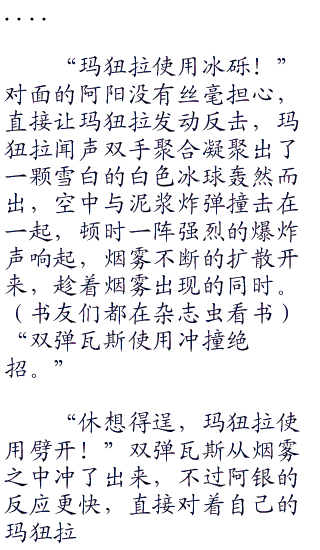 ....
“玛狃拉使用冰砾！”
对面的阿阳没有丝毫担心，
直接让玛狃拉发动反击，玛
狃拉闻声双手聚合凝聚出了
一颗雪白的白色冰球轰然而
出，空中与泥浆炸弹撞击在
一起，顿时一阵强烈的爆炸
声响起，烟雾不断的扩散开
来，趁着烟雾出现的同时。
（书友们都在杂志虫看书）
“双弹瓦斯使用冲撞绝
招。”
“休想得逞，玛狃拉使
用劈开！”双弹瓦斯从烟雾
之中冲了出来，不过阿银的
反应更快，直接对着自己的
玛狃拉